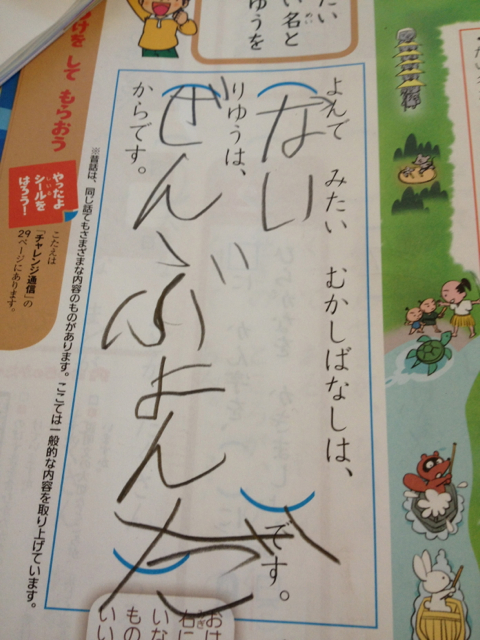 たい
い名と
ゆうを
よんで みたい むかしばなしは、
(ない)です。
りゆうは、
(ぜんぶよんだ)
からです。
※昔話は、同じ話でもさまざまな内容のものがあります。ここでは一般的な内容を取り上げています。
けを して もらおう
やったよ
シールを
はろう!
こたえは
「チャレンジ通信」の
29ページにあります。
おは
右に
いな
もの
いい